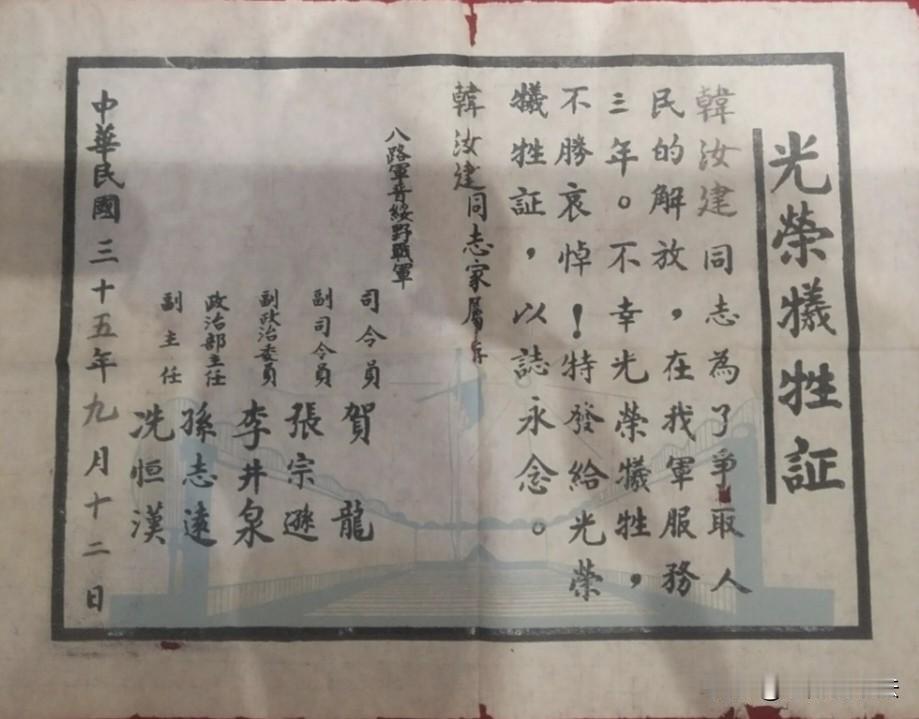 光榮犧牲証
韓汝建同志為了爭取人
民的解放，在我軍服務
三年。不幸光榮犧牲，
不勝哀悼！特發給光榮
犧牲証，以誌永念。
韓汝建同志家屬存
八路軍晉綏野戰軍
司令員 賀龍
副司令員 張宗遜
副政治委員 李井泉
政治部主任 孫志遠
副主任 冼恒漢
中華民國三十五年九月十二日